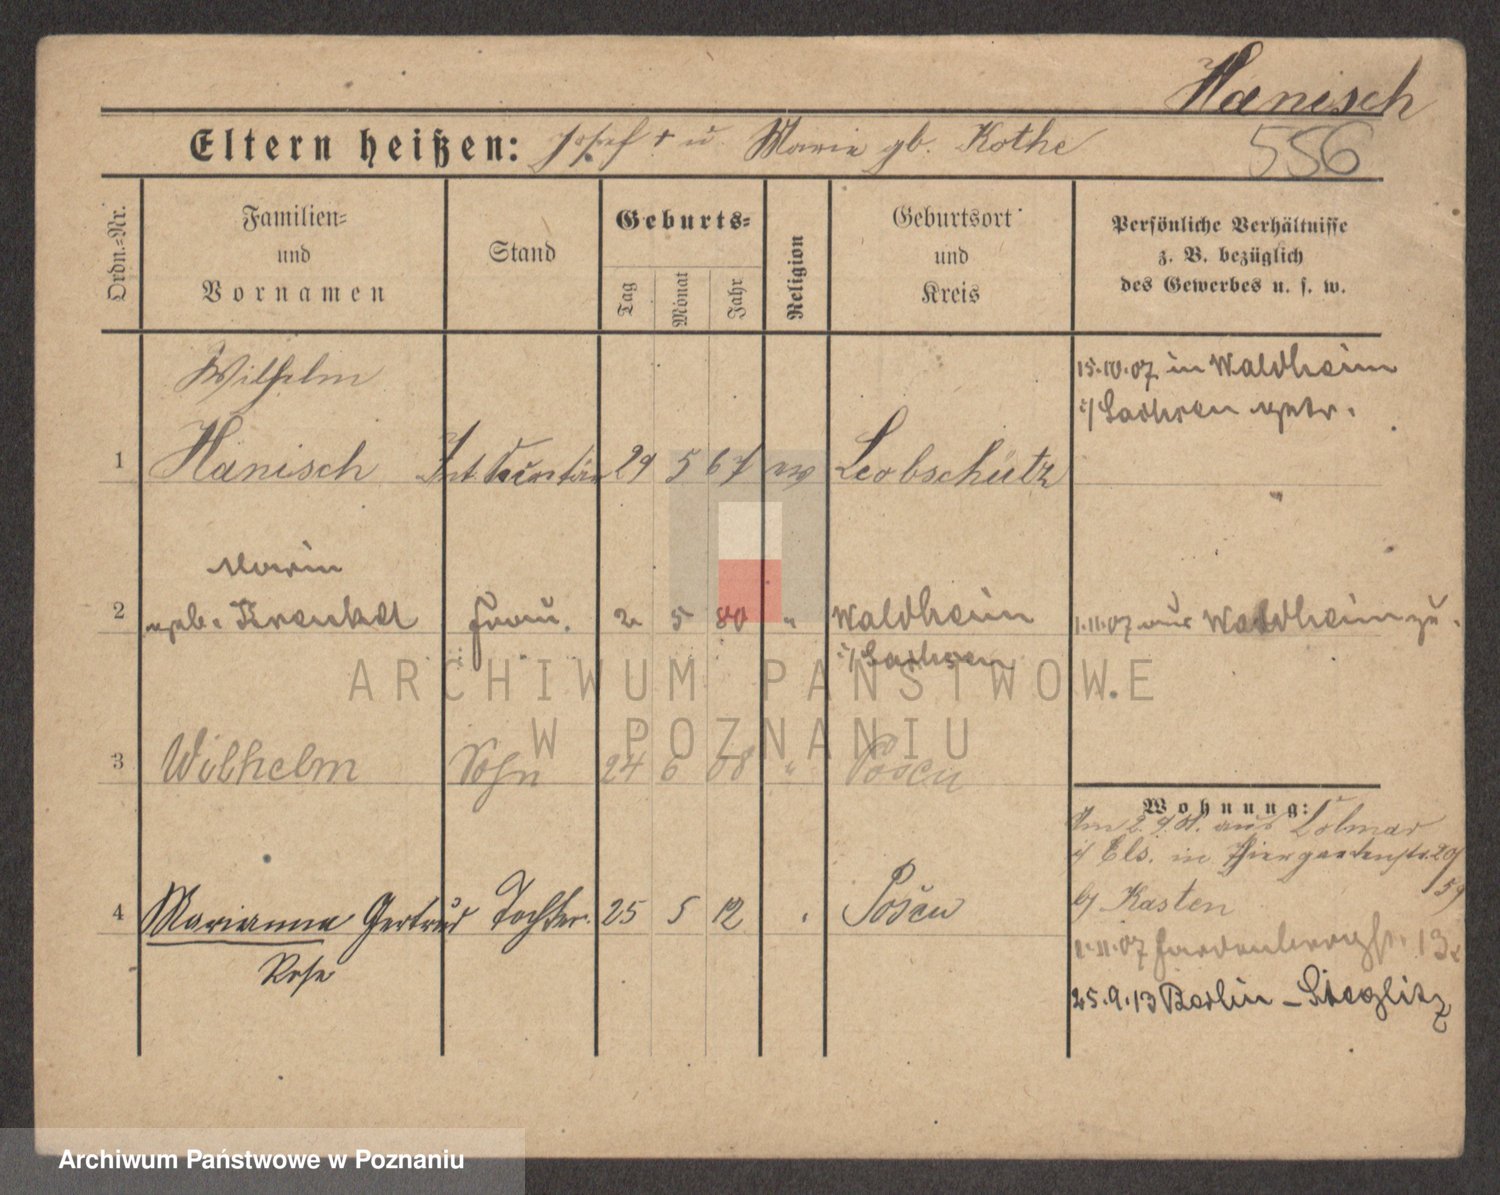 Hanisch
556
Eltern heißen: Josef † u. Marie gb. Kothe
Ordn.-Nr.
Familien-
und
Vornamen
Stand
Geburts-
Tag
Monat
Jahr
Religion
Geburtsort
und
Kreis
Persönliche Verhältnisse
z. B. bezüglich
des Gewerbes u. s. w.
Wilhelm
15.10.07 in Waldheim
i/Sachsen getr.
1 Hanisch Int. 29 5 67 ev Leobschütz
Marie
2 geb. Frau. 2 5 80 " Waldheim 1.11.07 aus Waldheim zu.
i/Sachsen
3 Wilhelm Sohn 24 6 08 " Posen
Wohnung:
Am 2. aus Colmar
i/ Els. in Thiergartenstr.
b/ Kasten
4 Marianne Gertrud Tochter. 25 5 12 " Posen
Rose
1.11.07 Hardenbergstr. 13
25.9.13 Berlin – Steglitz
ARCHIWUM PAŃSTWOWE
W POZNANIU
Archiwum Państwowe w Poznaniu